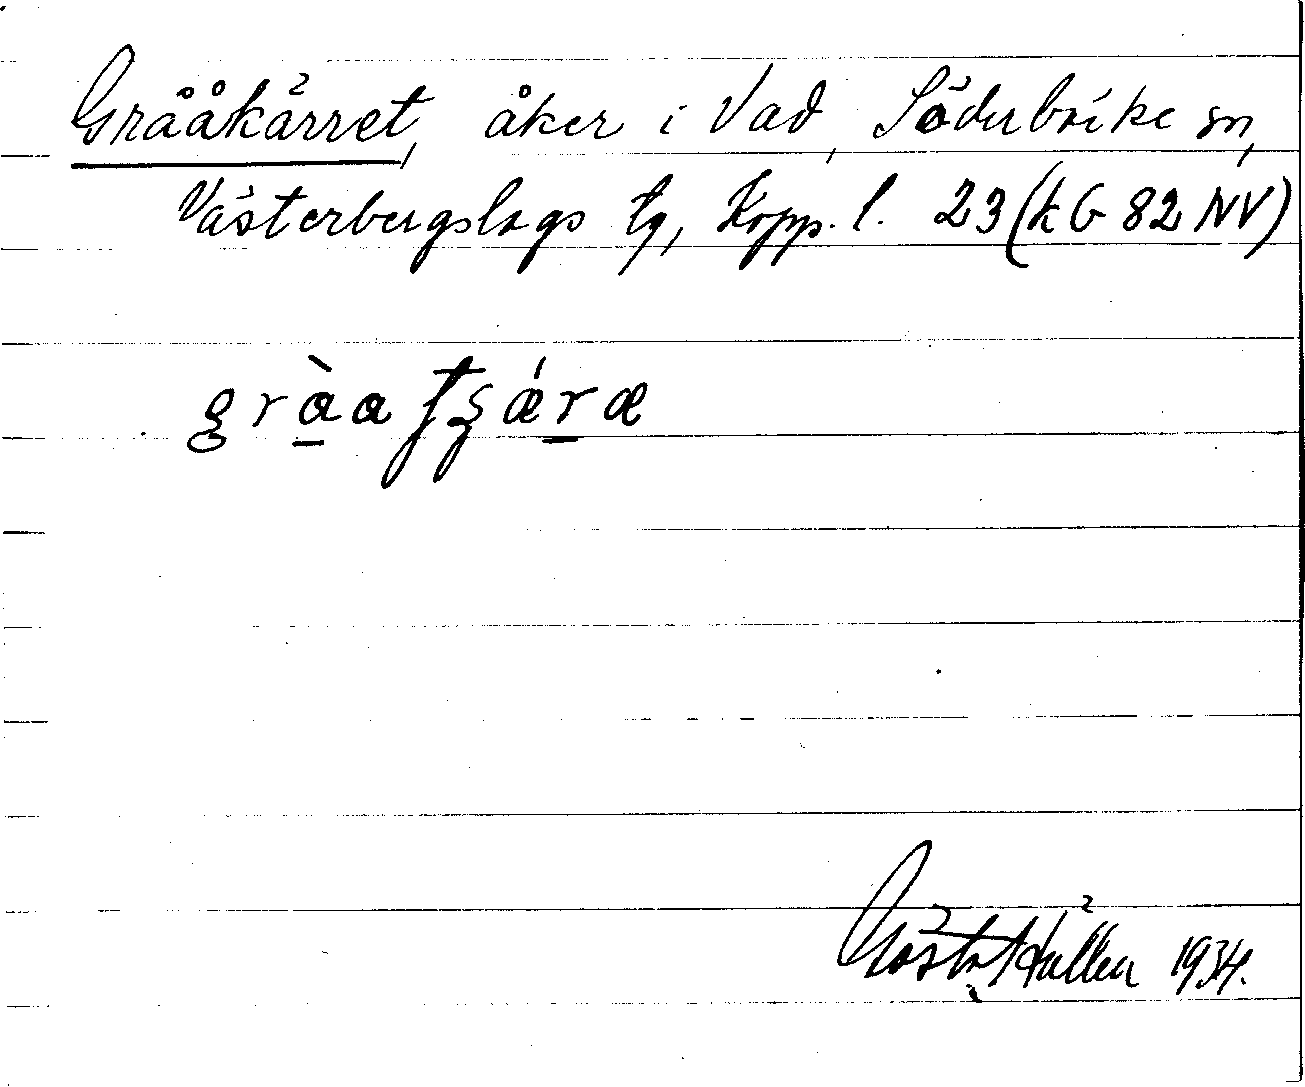 Grååkärret, åker i Vad, Söderbärke sn,
Västerbergslags tg, Kopp. l. 23 (k G 82 NV)
gràa tʂǽræ
Gösta Hallen 1934.